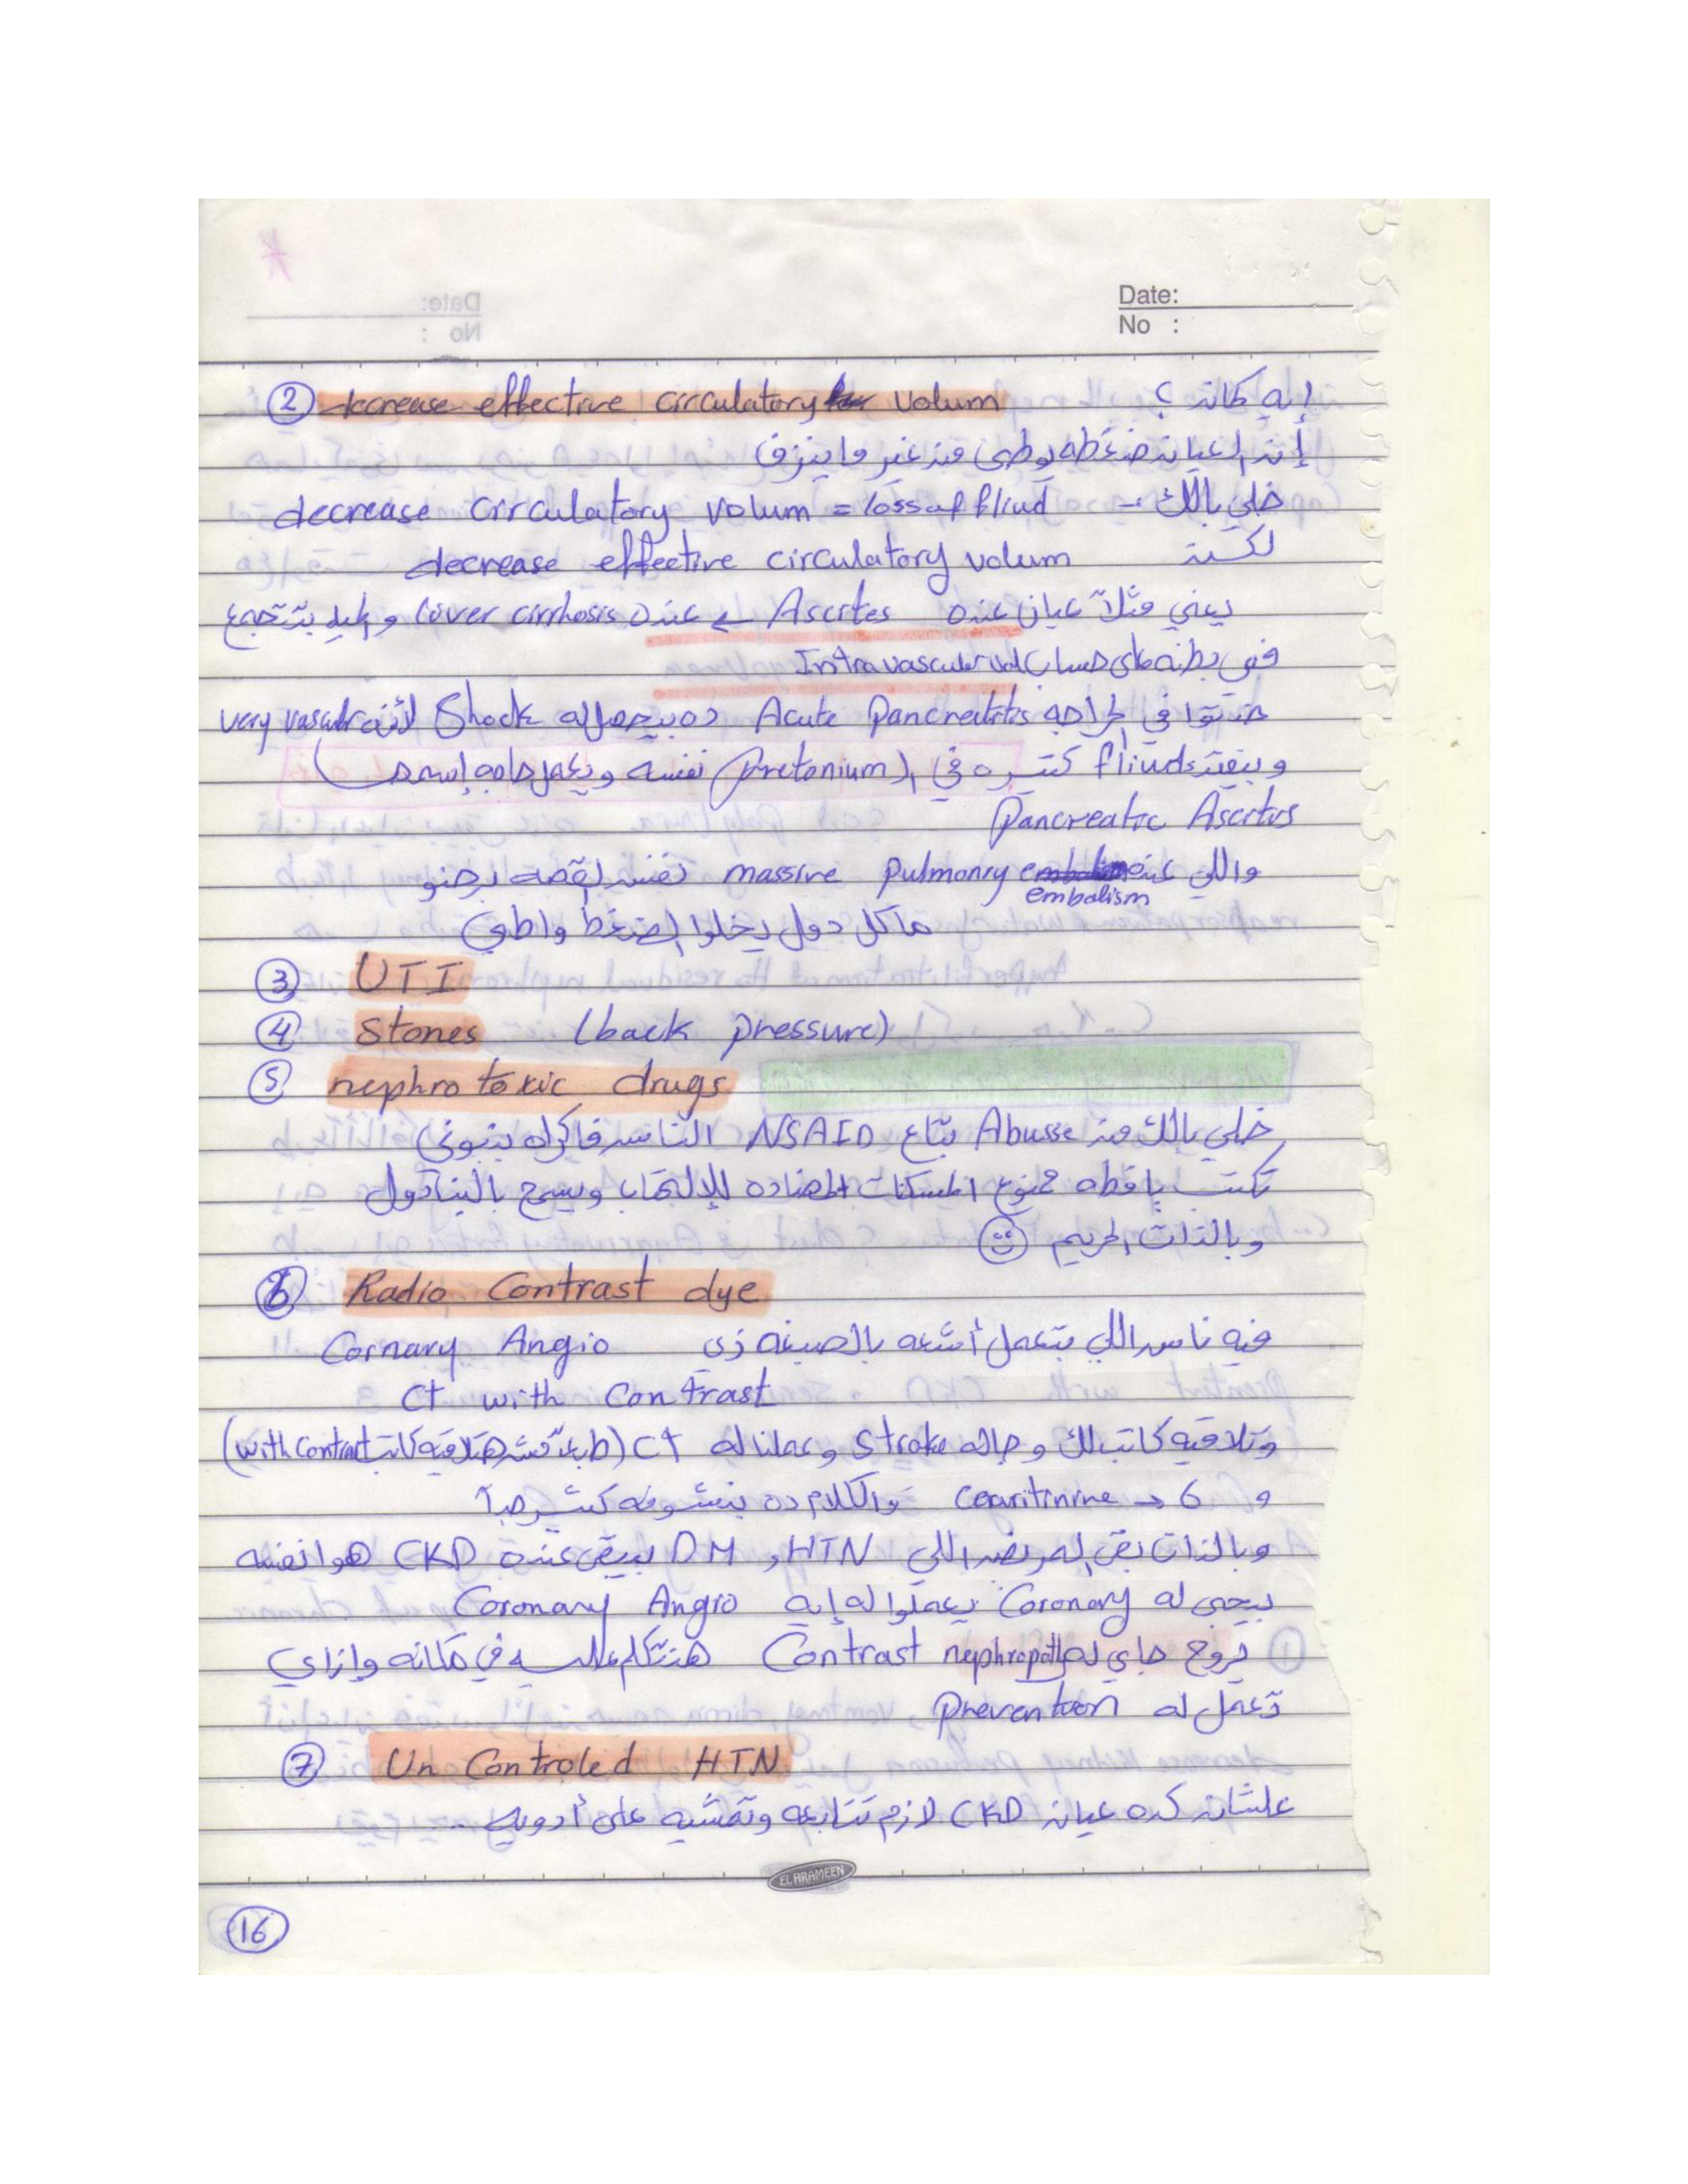 Date:
No :
② decrease effective circulatory volum إيه كمان؟
إن العيان ضغطه يوطى من غير ما ينزف
خلي بالك :- decrease circulatory volum = loss of fliud
لكن decrease effective circulatory volum
يعني مثلاً عيان عنده Ascites عنده liver cirrhosis و المية بتتجمع
في بطنه على حساب Intravascular vol
خدتوا في الجراحه Acute Pancreatitis ده بيحصله Shock لأنه very vascular
وبيفقد fliuds كتيره في ال (pretonium نفسه ويعمل حاجه إسمها)
Pancreatic Ascites
واللي عنده massive pulmonry embalism نفس القصه برضو
ما كل دول يخلوا الضغط واطي
③ UTI
④ Stones (back pressure)
⑤ nephrotoxic drugs
خلي بالك من Abusse بتاع NSAID الناس فاكراه بنبوني
تكتب يافطه ممنوع المسكنات المضاده للإلتهاب ويسمح بالبنادول
وبالذات الحريم
⑥ Radio Contrast dye
فيه ناس اللي بتعمل أشعه بالصبغه زي Cornary Angio
CT with Contrast
وتلاقيه كاتب لك وجاله Stroke وعملنا له CT (طبعاً مش هتلاقيه كاتب with Contrast)
و Cearitinine → 6 والكلام ده بنشوفه كتير جداً
وبالذات بقى المريض اللي HTN , DM بيبقى عنده CKD هوا نفسه
بيجى له Coronary يعملوا له إيه Coronary Angio
يروح جاي له Contrast nephropathy هنتكلم عليه في مكانه وإزاي
تعمل له prevention
⑦ Un Controled HTN
علشان كده عيان CKD لازم تتابعه وتمشيه على أدويه ..
EL HRAMEEN
⑯